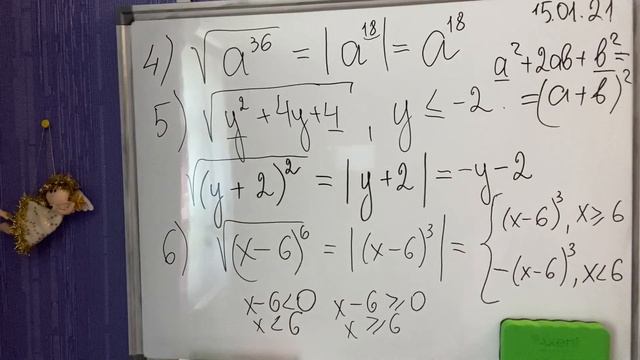 15.01.21
4) √a³⁶ = |a¹⁸| = a¹⁸
a² + 2ab + b² =
= (a + b)²
5) √y² + 4y + 4 , y ≤ -2
√(y + 2)² = |y + 2| = -y - 2
6) √(x - 6)⁶ = |(x - 6)³| = { (x - 6)³, x ≥ 6
-(x - 6)³, x < 6
x - 6 < 0 x - 6 ≥ 0
x < 6 x ≥ 6